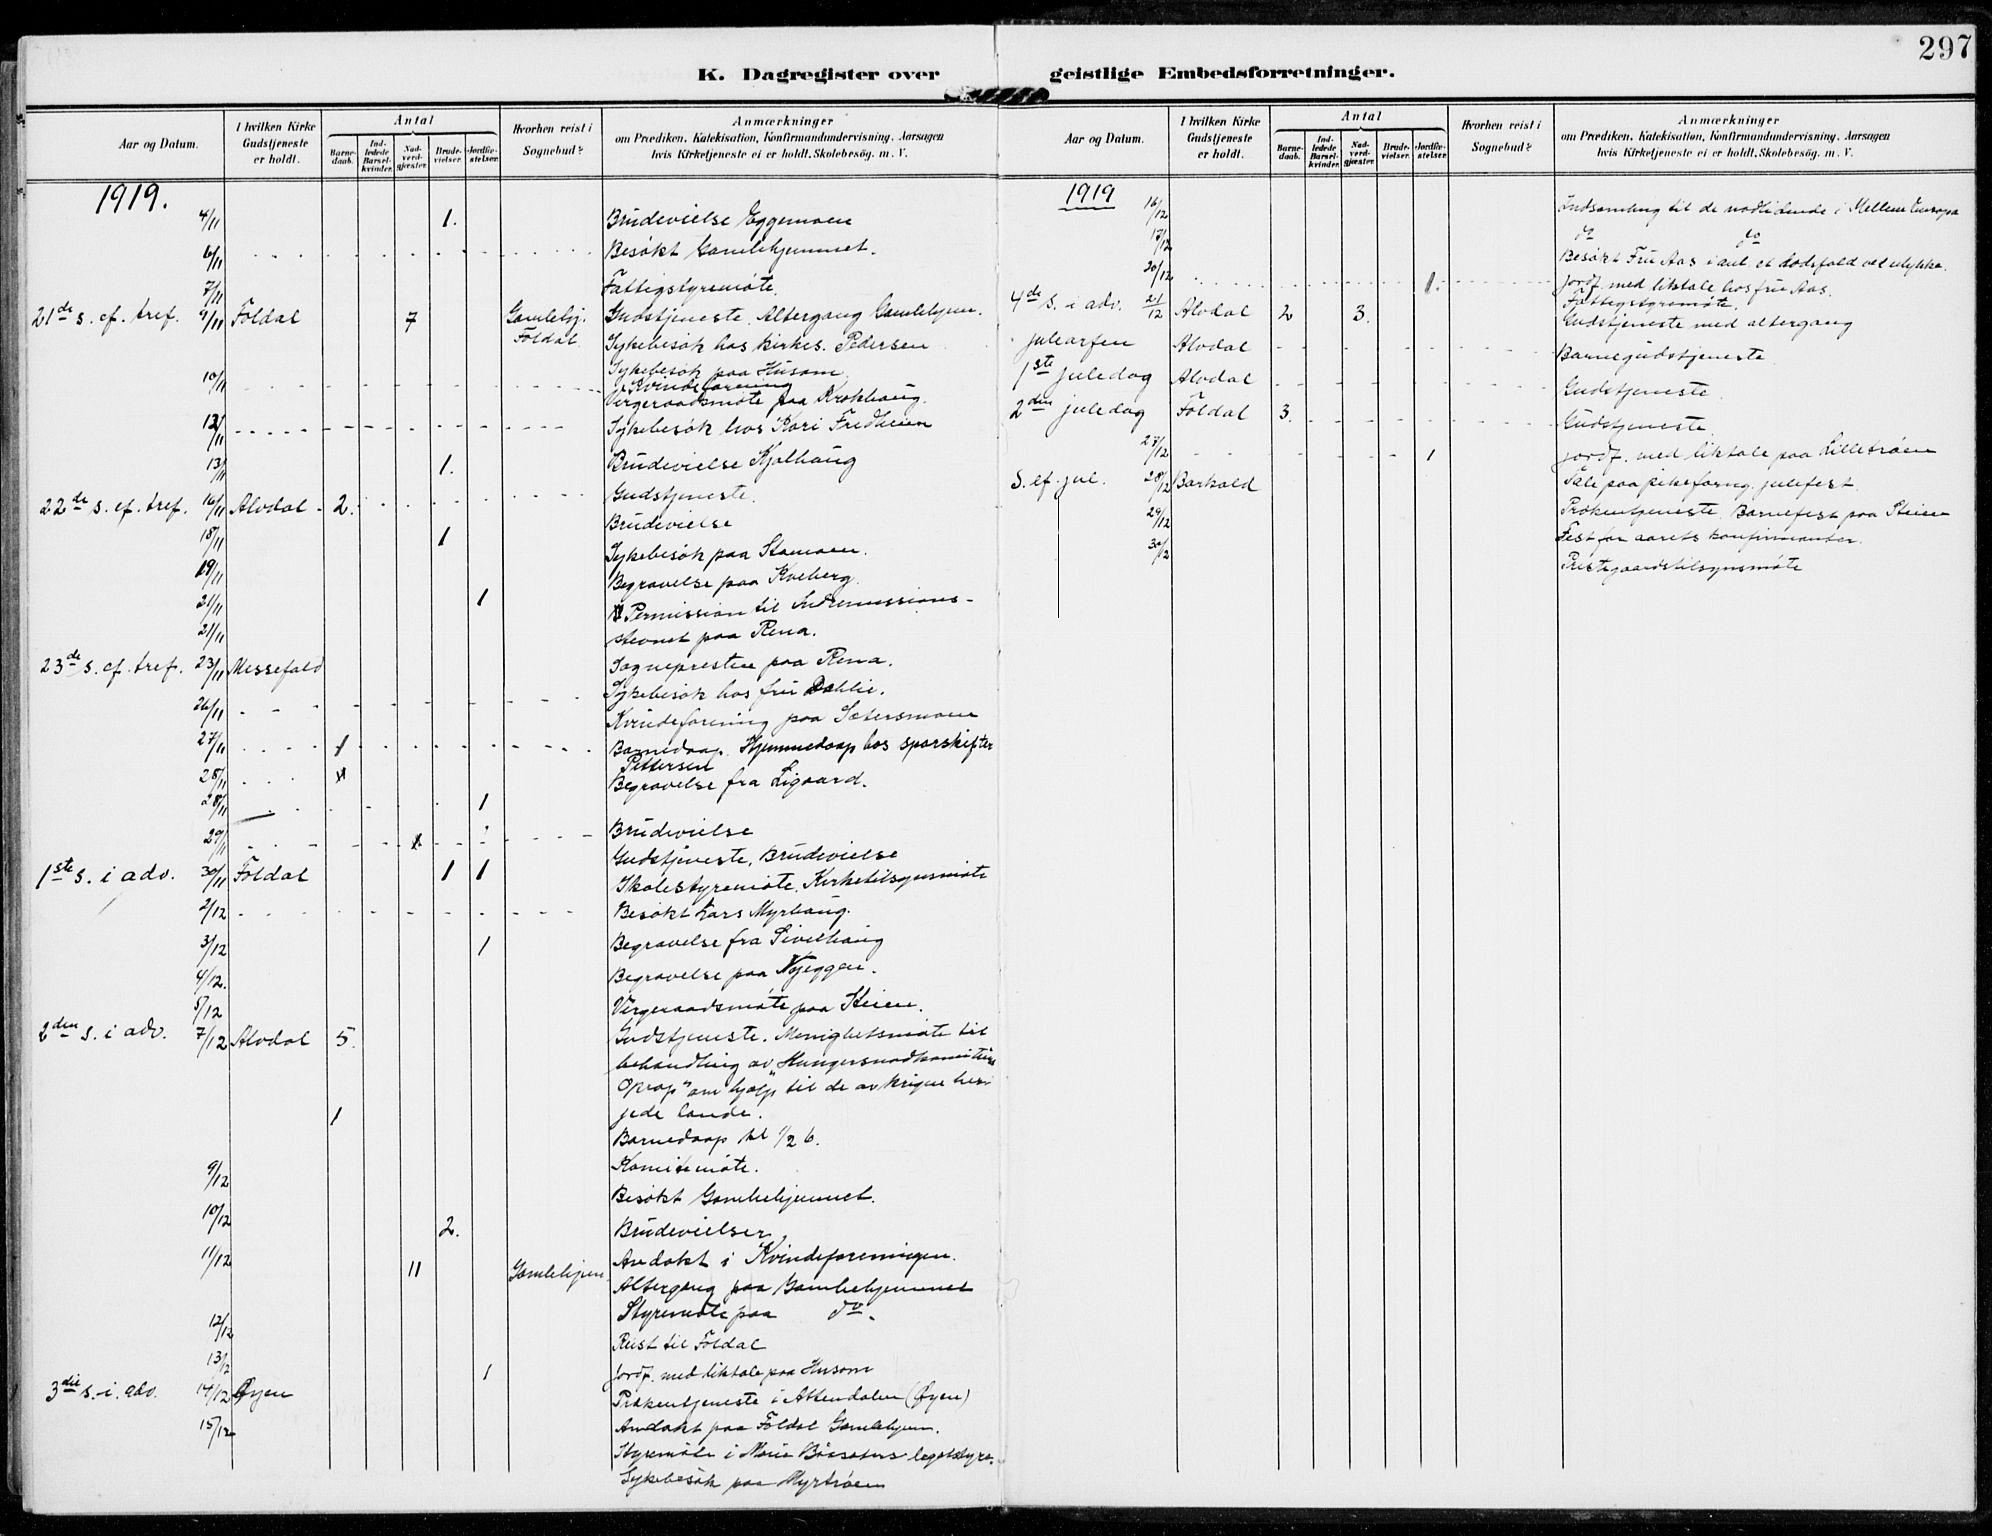 297
K. Dagregister over geistlige Embedsforretninger.
Aar og Datum. I hvilken Kirke Gudstjeneste er holdt. Antal Barnedaab. Indledede Barselkvinder. Nadverdgjæster. Brudevielser. Jordfæstelser. Hvorhen reist i Sognebud? Anmærkninger om Prædiken, Katekisation, Konfirmandundervisning, Aarsagen hvis Kirketjeneste ei er holdt, Skolebesög. m. V.
1919.
4/11 1. Brudevielse Eggemoen
6/11 Besøkt Gamlehjemmet.
7/11 Fattigstyremøte.
21de s. ef. tref. 9/11 Foldal 7 Gamlehj. Gudstjeneste. Altergang Gamlehjem.
Foldal. Sykebesøk hos kirkes. Pedersen
Sykebesøk paa Husom.
10/11 Kvindeforening
Vergeraadsmøte paa Krokhaug.
12/11 Sykebesøk hos Kari Fredheim
13/11 1. Brudevielse Kjølhaug
22de s. ef. tref. 16/11 Alvdal 2. Gudstjeneste.
18/11 1 Brudevielse
19/11 Sykebesøk paa Stamoen.
21/11 1 Begravelse paa Kveberg.
21/11 Permission til Indremissions-
stevnet paa Rena.
23de s. ef. tref. 23/11 Messefald Sognepresten paa Rena.
26/11 Sykebesøk hos fru Dahlie.
Kvindeforening paa Sætersmoen
27/11 1 Barnedaap. Hjemmedaap hos sporskifter
28/11 Pettersen
28/11 1 Begravelse fra Ligaard.
29/11 Brudevielse
1ste s. i adv. 30/11 Foldal 1 1 Gudstjeneste. Brudevielse
Skolestyremøte. Kirketilsynsmøte
2/12 Besøkt Lars Myrhaug.
3/12 1 Begravelse fra Sivilhaug
4/12. Begravelse paa Nyeggen.
5/12 Vergeraadsmøte paa Steien.
2den s. i adv. 7/12 Alvdal 5. Gudstjeneste. Menighetsmøte til
behandling av "Hungersnødkomiteens
Oprop" om hjælp til de av krigen her-
jede lande.
1 Barnedaap kl 1/2 6.
9/12 Komitemøte.
10/12 Besøkt Gamlehjemmet.
2. Brudevielser
11/12 Andakt i Kvindeforeningen.
11 Gamlehjem Altergang paa Gamlehjemmet
Styremøte paa do.
12/12 Reist til Foldal
13/12 1 Jordf. med liktale paa Husom
3die s. i. adv. 14/12 Øyen Prækentjeneste i Attendalen (Øyen)
15/12 Andakt paa Foldal Gamlehjem.
Styremøte i Marie legatstyre.
Sykebesøk paa Myrtrøen
Aar og Datum. I hvilken Kirke Gudstjeneste er holdt. Antal Barnedaab. Indledede Barselkvinder. Nadverdgjæster. Brudevielser. Jordfæstelser. Hvorhen reist i Sognebud? Anmærkninger om Prædiken, Katekisation, Konfirmandundervisning, Aarsagen hvis Kirketjeneste ei er holdt, Skolebesög. m. V.
1919
16/12 Indsamling til de nødlidende i Mellem Europa
17/12 do do
Besøkt Fru Aas i anl et dødsfald ved ulykke.
20/12 1. Jordf. med liktale hos fru Aas.
Fattigstyremøte.
4de s. i adv. 21/12 Alvdal 2 3. Gudstjeneste med altergang
juleaften Alvdal Barnegudstjeneste
1ste juledag Alvdal Gudstjeneste
2den juledag Foldal 3. Gudstjeneste
27/12 1 Jordf. med liktale paa Lilletrøen
S. ef. jul. 28/12 Barkald Tale paa pikeforng. julefest.
29/12 Prækentjeneste. Barnefest paa Steien
30/12 Fest for aarets konfirmanter.
Prestegaardstilsynsmøte